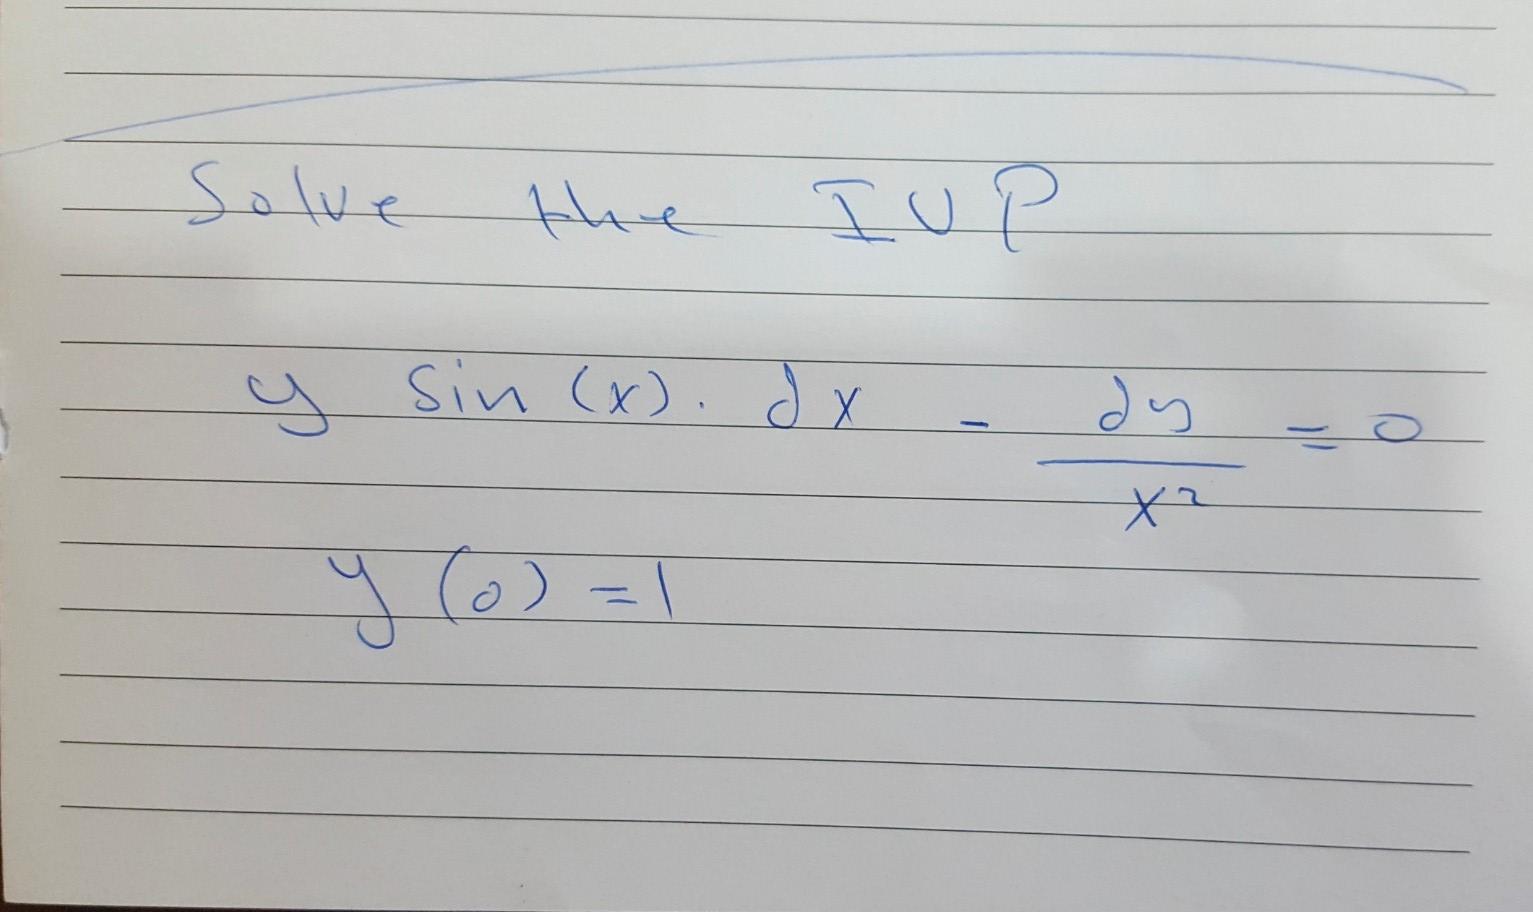 Solve the IVP
y sin (x). dx - dy/x² = 0
y (0) = 1